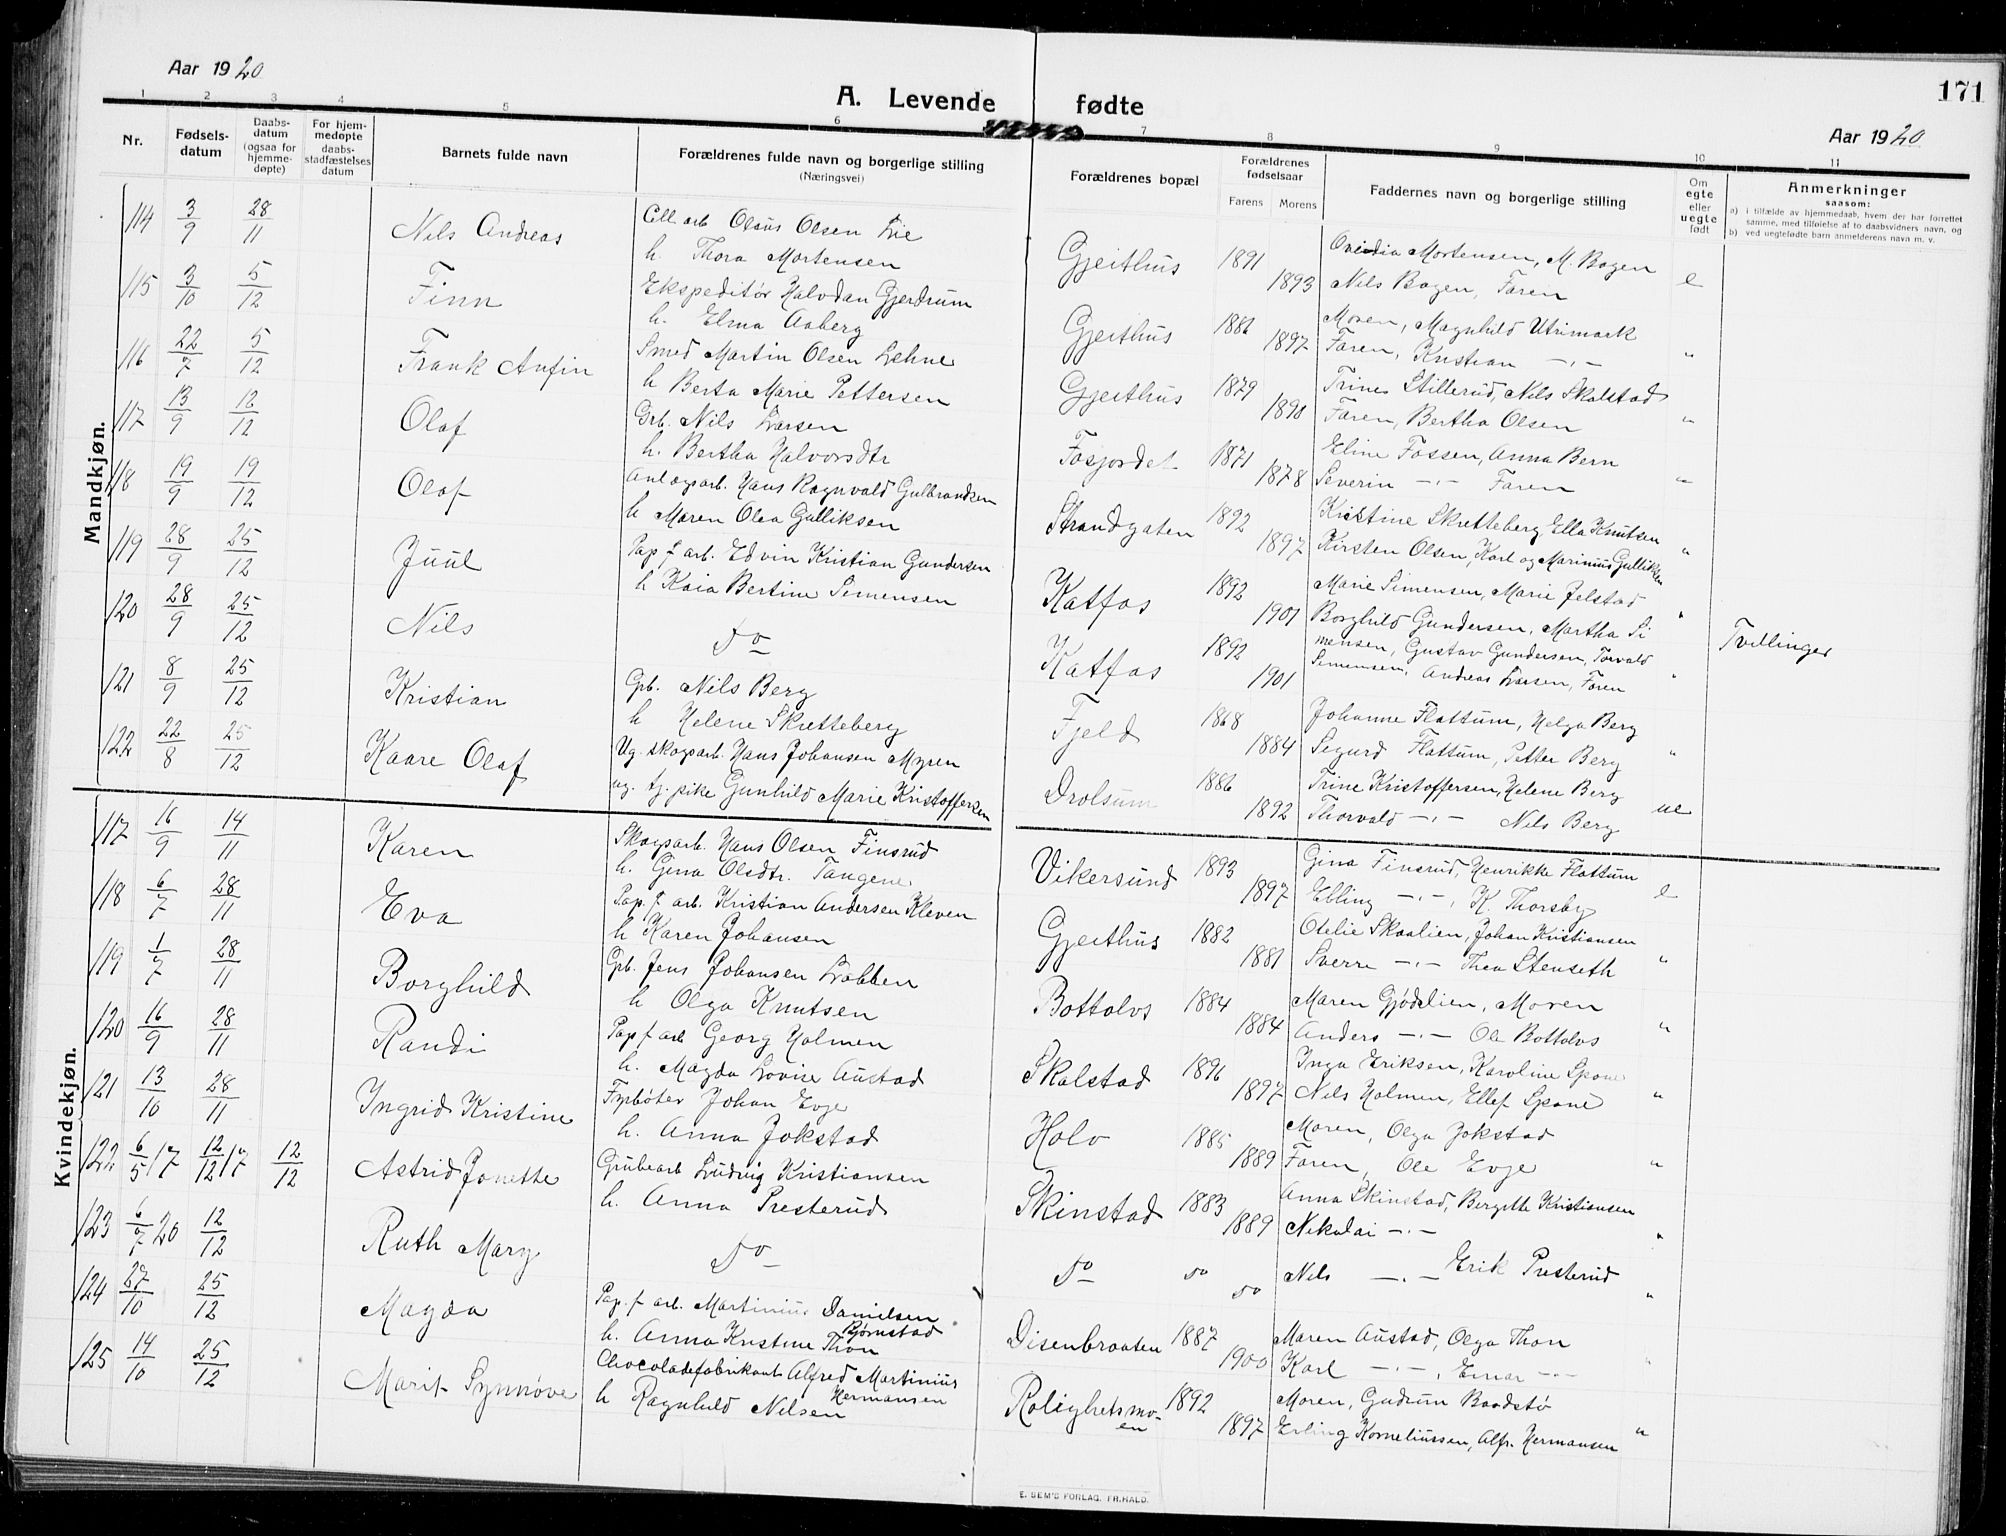 Aar 1920
A. Levende fødte
171
Aar 1920
1 2 3 4 5 6 7 8 9 10 11
Nr.
Fødsels-
datum
Daabs-
datum
(ogsaa for
hjemme-
døpte)
For hjem-
medøpte
daabs-
stadfæstelses
datum
Barnets fulde navn
Forældrenes fulde navn og borgerlige stilling
(Næringsvei)
Forældrenes bopæl
Forældrenes
fødselsaar
Farens Morens
Faddernes navn og borgerlige stilling
Om
egte
eller
uegte
født
Anmerkninger
saasom:
a) i tilfælde av hjemmedaab, hvem der har forrettet
samme, med tilføielse af to daabsvidners navn, og
b) ved uegtefødte barn anmelderens navn m. v.
Mandkjøn.
114 3/9 28/11 Nils Andreas Cell arb Olaus Olsen Lie Gjeithus 1891 Ovidia Mortensen, M. Bagen e
h. Thora Mortensen 1893 Nils Bagen, Faren
115 3/10 5/12 Finn Ekspeditør Halvdan Gjerdrum Gjeithus 1886 Moren, Magnhild Utrimark
h. Elma Aaberg 1897 Faren, Kristian -"- "
116 22/7 5/12 Frank Anfin Smed Martin Olsen Lehne Gjeithus 1879 Trine Stillerud, Nils Skalstad
h Berta Marie Pettersen 1890 Faren, Bertha Olsen "
117 13/9 12/12 Olaf Grb. Nils Larsen Fosjordet 1871 Eline Fossen, Anna Bern
h. Bertha Halvorsdtr 1878 Severin -"- Faren "
118 19/9 19/12 Olaf Anlægsarb. Hans Ragnvald Gulbrandsen Strandgaten 1892 Kristine Skretteberg, Ella Knutsen
h Maren Olea Gulliksen 1897 Kirsten Olsen, Karl og Marinius Gulliksen "
119 28/9 25/12 Juul Pap f. arb. Edvin Kristian Gundersen Katfos 1892 Marie Simensen, Marie Jelstad
h Kaia Bertine Simensen 1901 Borghild Gundersen, Martha Si "
120 28/9 25/12 Nils Do Katfos 1892 mensen, Gustav Gundersen, Torvald Tvillinger
1901 Simensen, Andreas Larsen, Faren "
121 8/9 25/12 Kristian Gpb. Nils Berg Fjeld 1868 Johanne Flattum, Helga Berg
h Helene Skretteberg 1884 Sigurd Flattum, Petter Berg "
122 22/8 25/12 Kaare Olaf Ug. skogsarb. Hans Johansen Myren Drolsum 1886 Trine Kristoffersen, Helene Berg
ug. tj. pike Gunhild Marie Kristoffersen 1892 Thorvald -"- Nils Berg ue
Kvindekjøn.
117 16/9 14/11 Karen Skogsarb. Hans Olsen Finsrud Vikersund 1893 Gina Finsrud, Henrikke Flattum
h. Gina Olsdtr. Tangene 1897 Elling -"-, K. Thorsby e
118 6/7 28/11 Eva Pap. f. arb. Kristian Andersen Kleven Gjeithus 1882 Otelie Skaalien, Johan Kristiansen
h Karen Johansen 1881 Sverre -"- Thea Stenseth "
119 1/7 28/11 Borghild Gpb. Jens Johansen Løbben Bottolvs 1884 Maren Gjødslien, Moren
h Olga Knutsen 1884 Anders -"- Ole Bottolvs "
120 16/9 28/11 Randi Pap f arb Georg Holmen Skalstad 1896 Inga Eriksen, Karoline Spone
h. Magda Lovise Austad 1897 Nils Holmen, Ellef Spone "
121 13/10 28/11 Ingrid Kristine Fyrbøter Johan Evje Holo 1885 Moren, Olga Jokstad
h. Anna Jokstad 1889 Faren, Ole Evje "
122 6/5 17 12/12 17 12/12 Astrid Jonette Grubearb Ludvig Kristiansen Skinstad 1883 Anna Skinstad, Bergitte Kristiansen
h. Anna Presterud 1889 Nikolai -"- "
123 6/7 20 12/12 Ruth Mary Do Do do Nils -"- Erik Presterud
do "
124 27/10 25/12 Magda Pap. f arb. Martinius Danielsen Bjørnstad Disenbraaten 1887 Maren Austad, Olga Thon
h. Anna Kristine Thon 1900 Karl -"-, Einar -"- "
125 14/10 25/12 Marit Synnøve Chocoladefabrikant Alfred Martinius Hermansen Rolighetsmo- 1892 Moren, Gudrun Baadstø
h Ragnhild Nilsen en 1897 Erling Korneliussen, Alfr. Hermansen "
E. SEM'S FORLAG. FR.HALD.